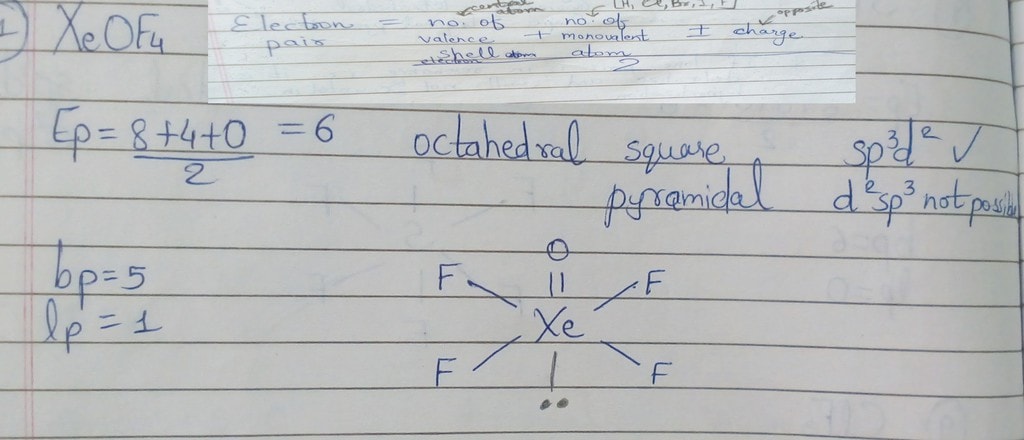 1) XeOF4
[H, Cl, Br, I, F]
central atom
opposite
Electron pair = no. of valence shell electron + no. of monovalent atom ± charge
2
Ep = 8+4+0 = 6 octahedral square sp³d² ✓
2 pyramidal d²sp³ not possible
O
bp=5 F || F
lp = 1 Xe
F | F
••